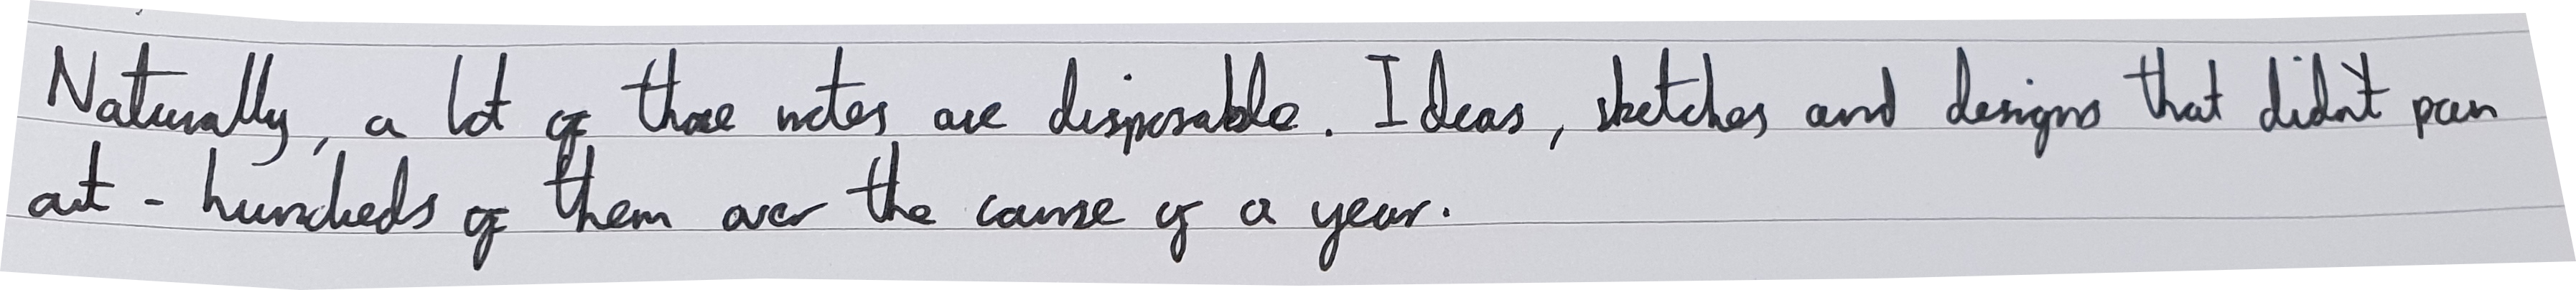 Naturally, a lot of those notes are disposable. Ideas, sketches and designs that didn't pan
out - hundreds of them over the course of a year.